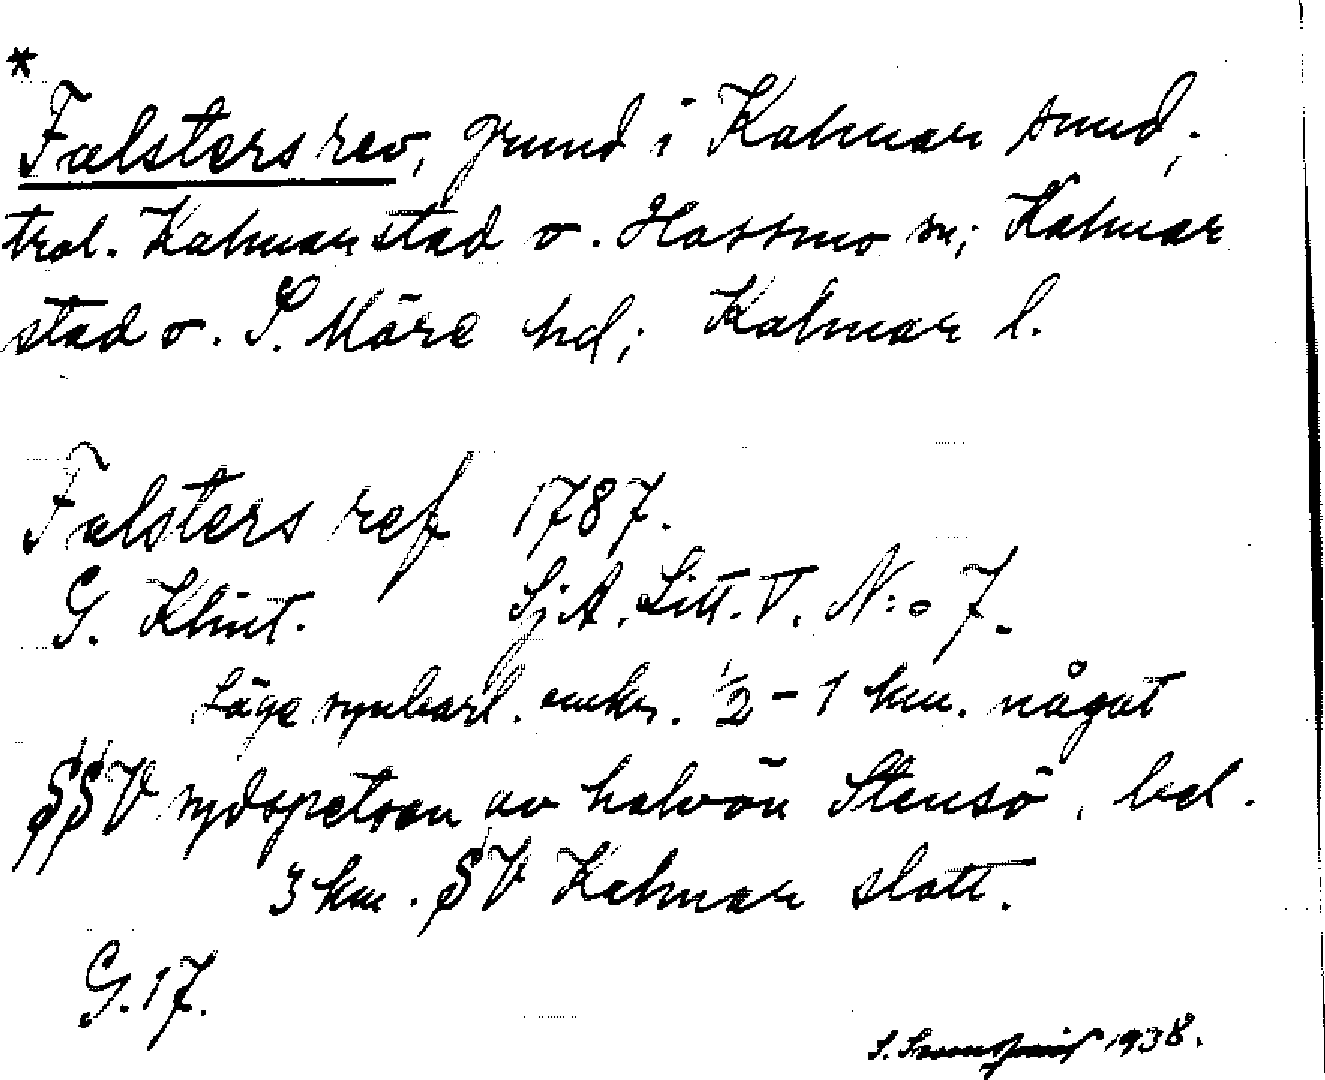 *
Falstersrev, grund i Kalmar sund;
trol. Kalmar stad o. Hossmo sn; Kalmar
stad o. S. Möre hd; Kalmar l.
Falsters ref 1787.
G. Klint. Sj.A. Litt. V. N:o 7.
Läge synbarl. omkr. 1/2 - 1 km. något
SSV sydspetsen av halvön Stensö, bel.
3 km. SV Kalmar slott.
G. 17.
S. 1938.